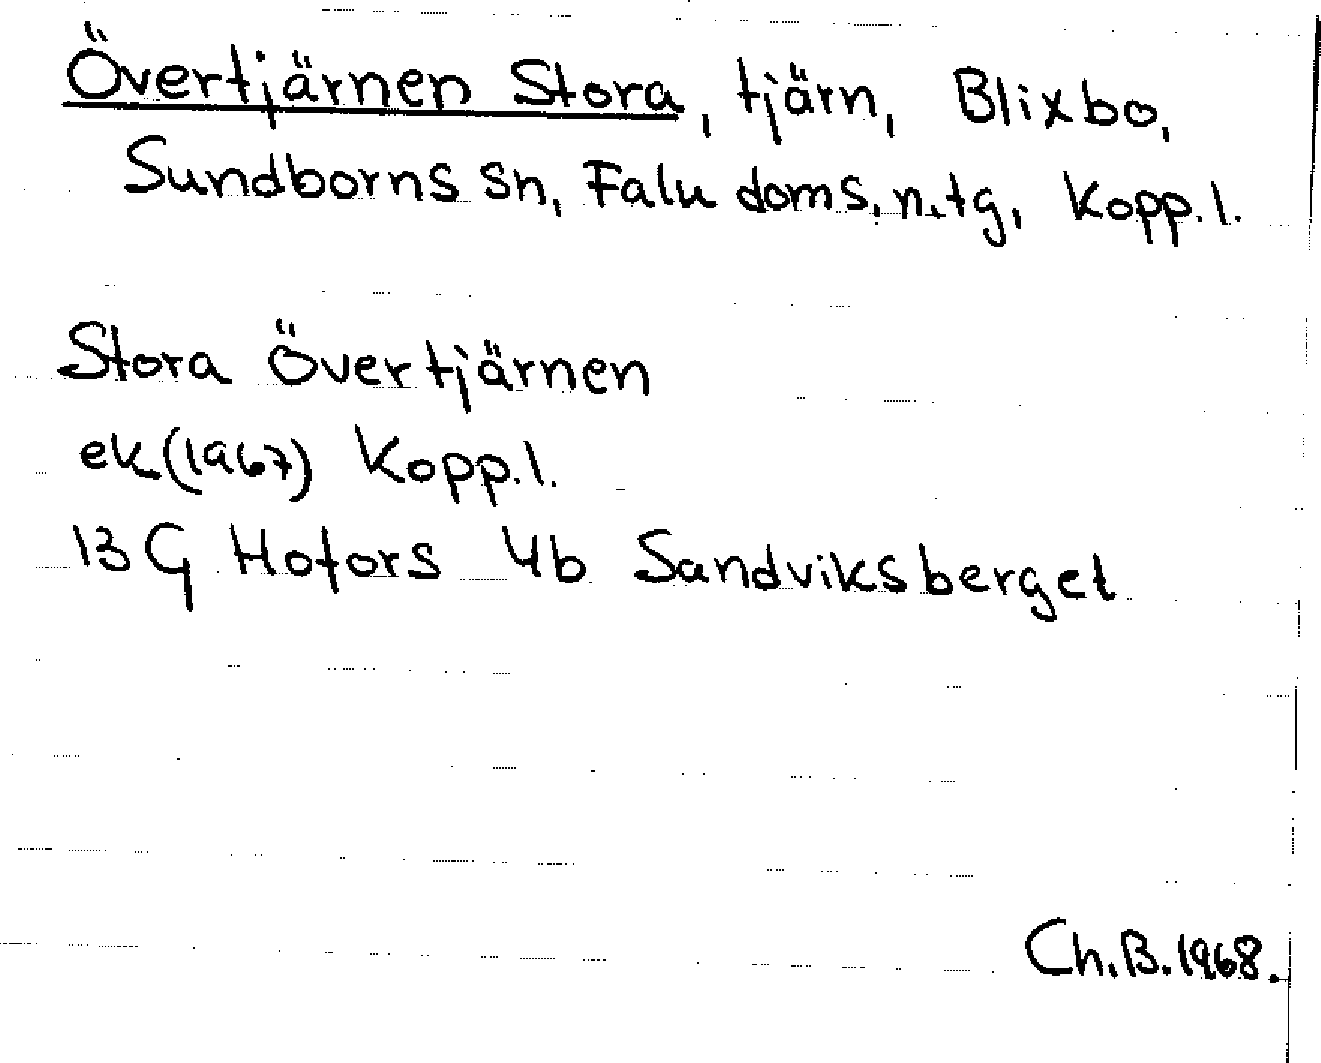 Övertjärnen Stora, tjärn, Blixbo,
Sundborns sn, Falu doms. n. tg, Kopp. l.
Stora Övertjärnen
ek (1967) Kopp. l.
13 G Hofors 4b Sandviksberget
Ch. B. 1968.